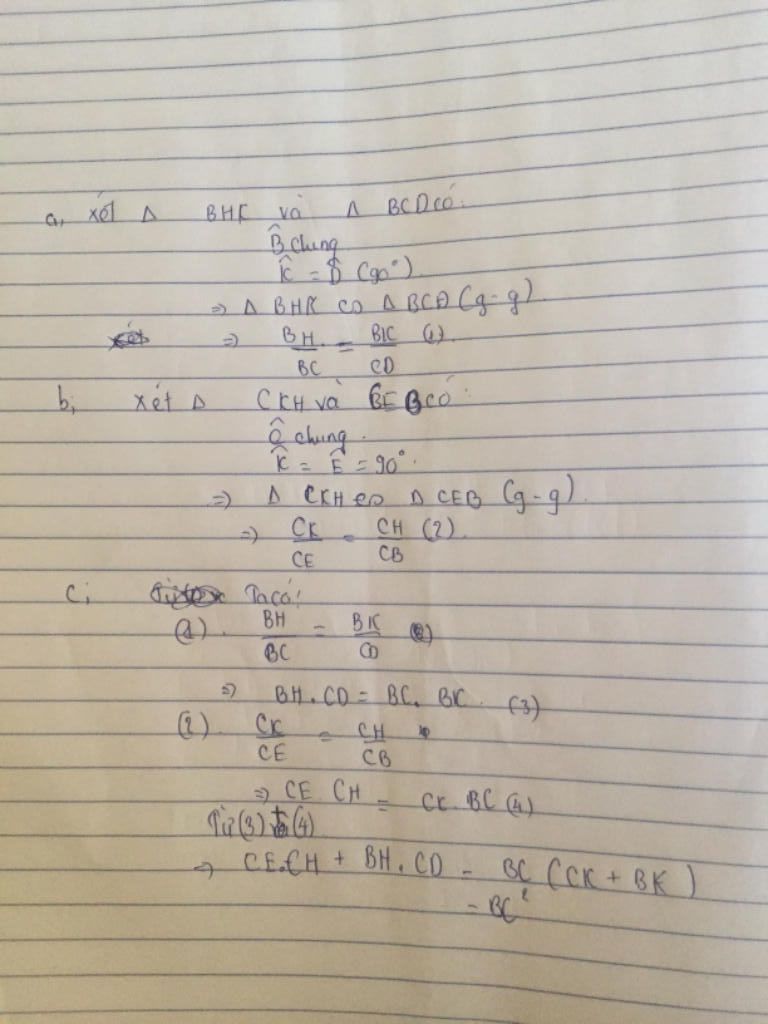 a, xét Δ BHK và Δ BCD có:
B̂ chung
K̂ = D̂ (90°)
⇒ Δ BHK ∽ Δ BCD (g-g)
⇒ BH/BC = BK/CD (1)
b, xét Δ CKH và CEB có:
Ĉ chung.
K̂ = Ê = 90°.
⇒ Δ CKH ∽ Δ CEB (g-g)
⇒ CK/CE = CH/CB (2)
c, Ta có:
(1). BH/BC = BK/CD
⇒ BH.CD = BC.BK (3)
(2). CK/CE = CH/CB
⇒ CE CH = CK.BC (4)
Từ (3) (4)
⇒ CE.CH + BH.CD = BC (CK + BK)
= BC²